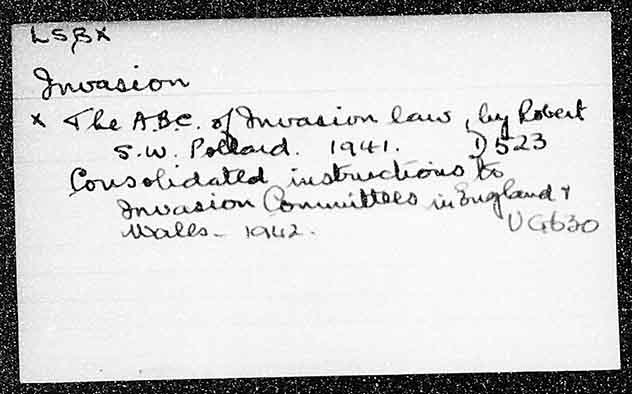 LSBX
Invasion
x The A.B.C. of Invasion law, by Robert
S.W. Pollard. 1941. D523
Consolidated instructions to
Invasion Committees in England &
Wales - 1942. UG630